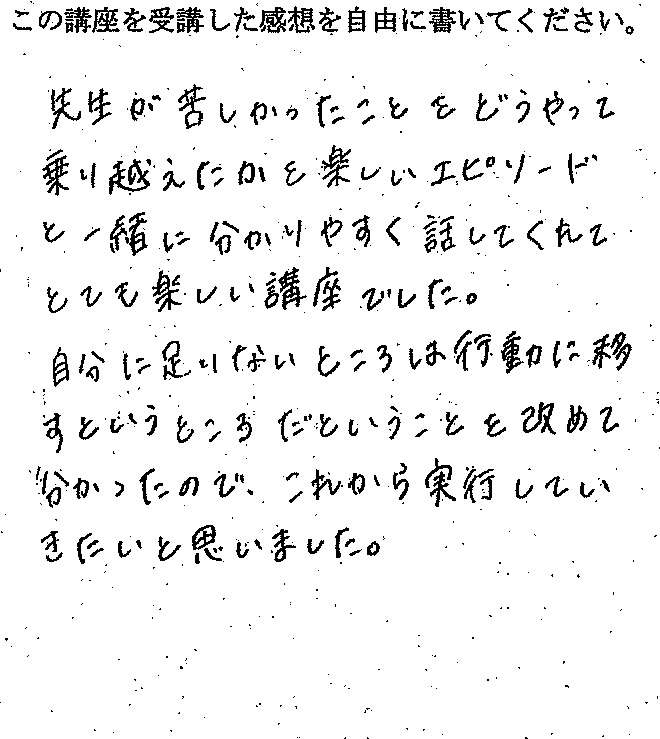 この講座を受講した感想を自由に書いてください。
先生が苦しかったことをどうやって
乗り越えたかを楽しいエピソード
と一緒に分かりやすく話してくれて
とても楽しい講座でした。
自分に足りないところは行動に移
すというところだということを改めて
分かったので、これから実行してい
きたいと思いました。